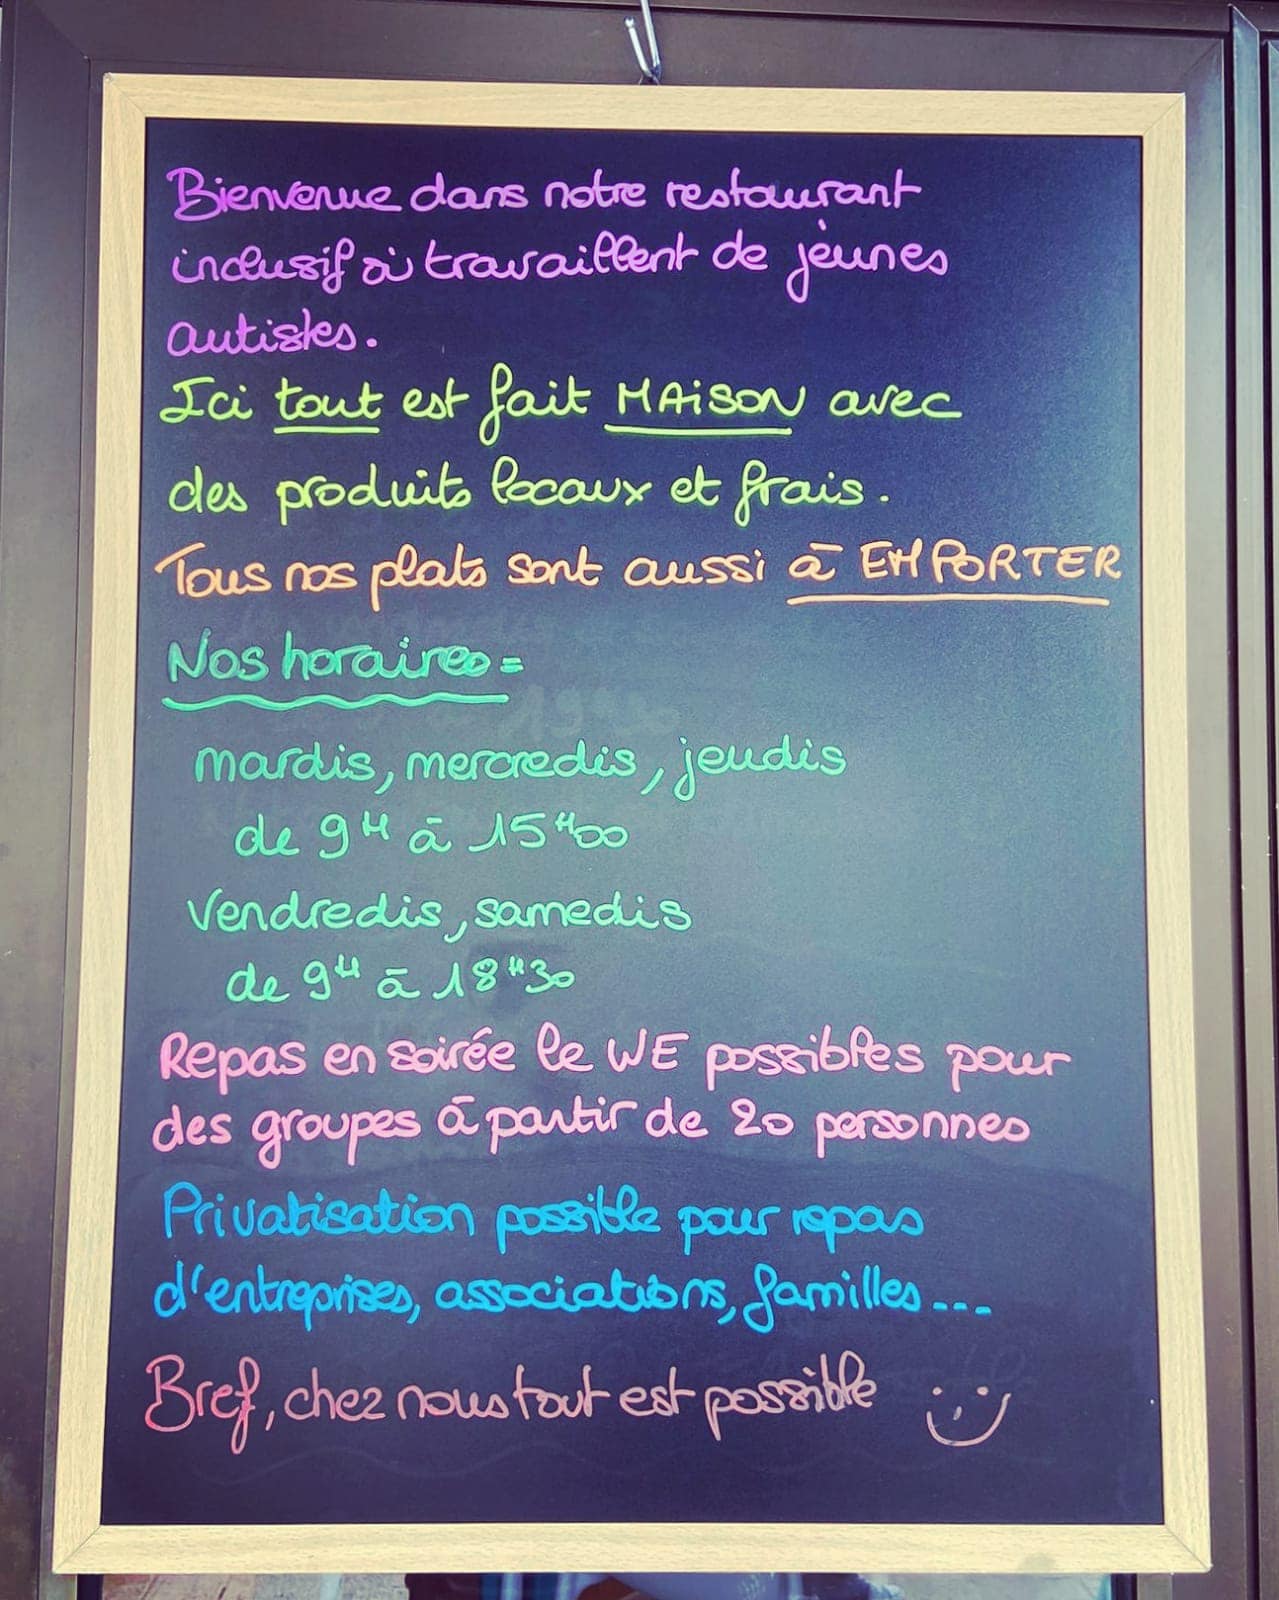 Bienvenue dans notre restaurant
inclusif où travaillent de jeunes
autistes.
Ici tout est fait MAISON avec
des produits locaux et frais.
Tous nos plats sont aussi à EMPORTER
Nos horaires =
mardis, mercredis, jeudis
de 9H à 15H00
Vendredis, samedis
de 9H à 18H30
Repas en soirée le WE possibles pour
des groupes à partir de 20 personnes
Privatisation possible pour repas
d'entreprises, associations, familles ...
Bref, chez nous tout est possible